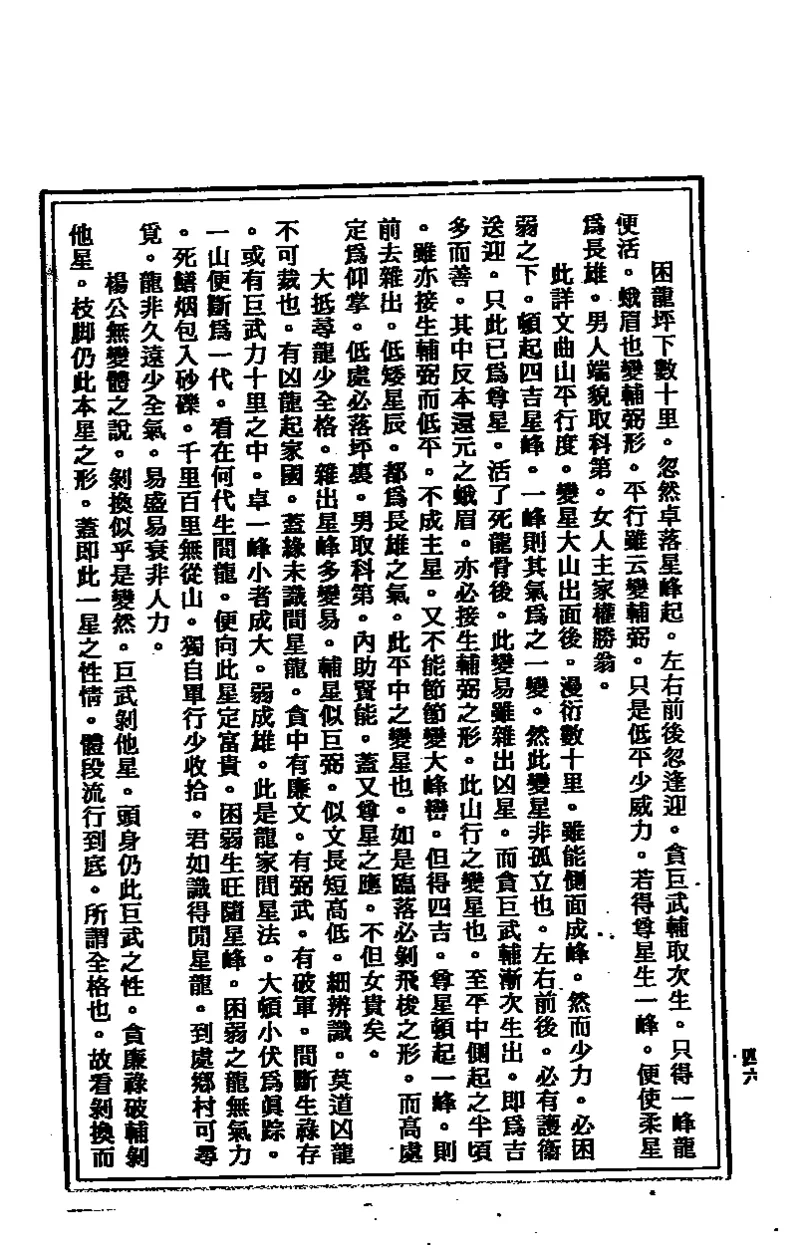 困龍坪下數十里。忽然卓落星峰起。左右前後忽逢迎。貪巨武輔取次生。只得一峰龍
便活。蛾眉也變輔弼形。平行雖云變輔弼。只是低平少威力。若得尊星生一峰。便使柔星
爲長雄。男人端貌取科第。女人主家權勝翁。
此詳文曲山平行度。變星大山出面後。漫衍數十里。雖能側面成峰。然而少力。必困
弱之下。頓起四吉星峰。一峰則其氣爲之一變。然此變星非孤立也。左右前後。必有護衛
送迎。只此已爲尊星。活了死龍骨後。此變易雖雜出凶星。而貪巨武輔漸次生出。即爲吉
多而善。其中反本還元之蛾眉。亦必接生輔弼之形。此山行之變星也。至平中側起之半頃
。雖亦接生輔弼而低平。不成主星。又不能節節變大峰巒。但得四吉。尊星頓起一峰。則
前去雜出。低矮星辰。都爲長雄之氣。此平中之變星也。如是臨落必剝飛梭之形。而高處
定爲仰掌。低處必落坪裏。男取科第。內助賢能。蓋又尊星之應。不但女貴矣。
大抵尋龍少全格。雜出星峰多變易。輔星似巨弼。似文長短高低。細辨識。莫道凶龍
不可裁也。有凶龍起家國。蓋緣未識間星龍。貪中有廉文。有弼武。有破軍。間斷生祿存
。或有巨武力十里之中。卓一峰小者成大。弱成雄。此是龍家間星法。大頓小伏爲眞踪。
一山便斷爲一代。看在何代生間龍。便向此星定富貴。困弱生旺隨星峰。困弱之龍無氣力
。死鱔烟包入砂礫。千里百里無從山。獨自單行少收拾。君如識得閒星龍。到處鄉村可尋
覓。龍非久遠少全氣。易盛易衰非人力。
楊公無變體之說。剝換似乎是變然。巨武剝他星。頭身仍此巨武之性。貪廉祿破輔剝
他星。枝脚仍此本星之形。蓋即此一星之性情。體段流行到底。所謂全格也。故看剝換而
四六